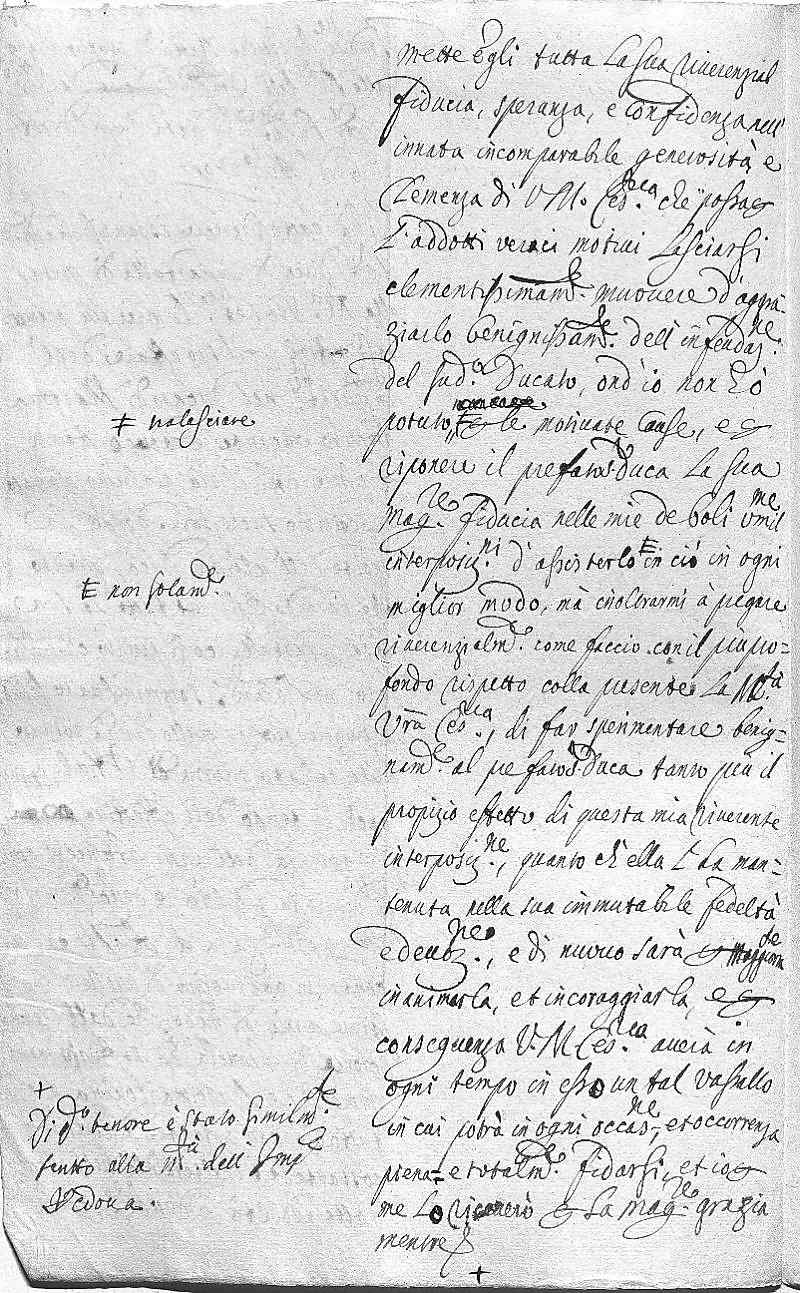 mette egli tutta la sua riverenzial
fiducia, speranza, e confidenza nell'
innata incomparabile generosità, e
Clemenza di V. M. Ces.rea che possa
l'addotti veraci motivi lasciarsi
clementissimam.te muovere d'aggra-
ziarlo benignissam.te dell'infeudaz.ne
del sud.o Ducato, ond'io non hò
potuto le motivate Cause, e
riponere il prefato S. Duca la sua
mag.re fiducia nelle mie deboli umil.me
interposiz.ni d'assisterlo ǂ in ciò in ogni
miglior modo, mà inoltrarmi à pregare
riverenzialm.te come faccio con il più pro-
fondo rispetto colla presente la M.tà
Vrã Ces.rea, di far sperimentare benig-
nam.te al prefato S. Duca tanto più il
propizio effetto di questa mia riverente
interposiz.ne, quanto ch'ella l'ha man-
tenuta nella sua immutabile fedeltà
e devoz.ne, e di nuovo sarà maggiorm.te
inanimarla, et incoraggiarla, e
conseguenza V. M. Ces.rea averà in
ogni tempo in esso un tal vassallo
in cui potrà in ogni occas.ne, et occorrenza
piena- e totalm.te fidarsi, et io
me lo riceverò la mag.re grazia
mentre
+
ǂ tralasciare
ǂ non solam.te
+
Di d.o tenore è stato similm.te
scritto alla M.tà dell'Imp.e
Vedova.